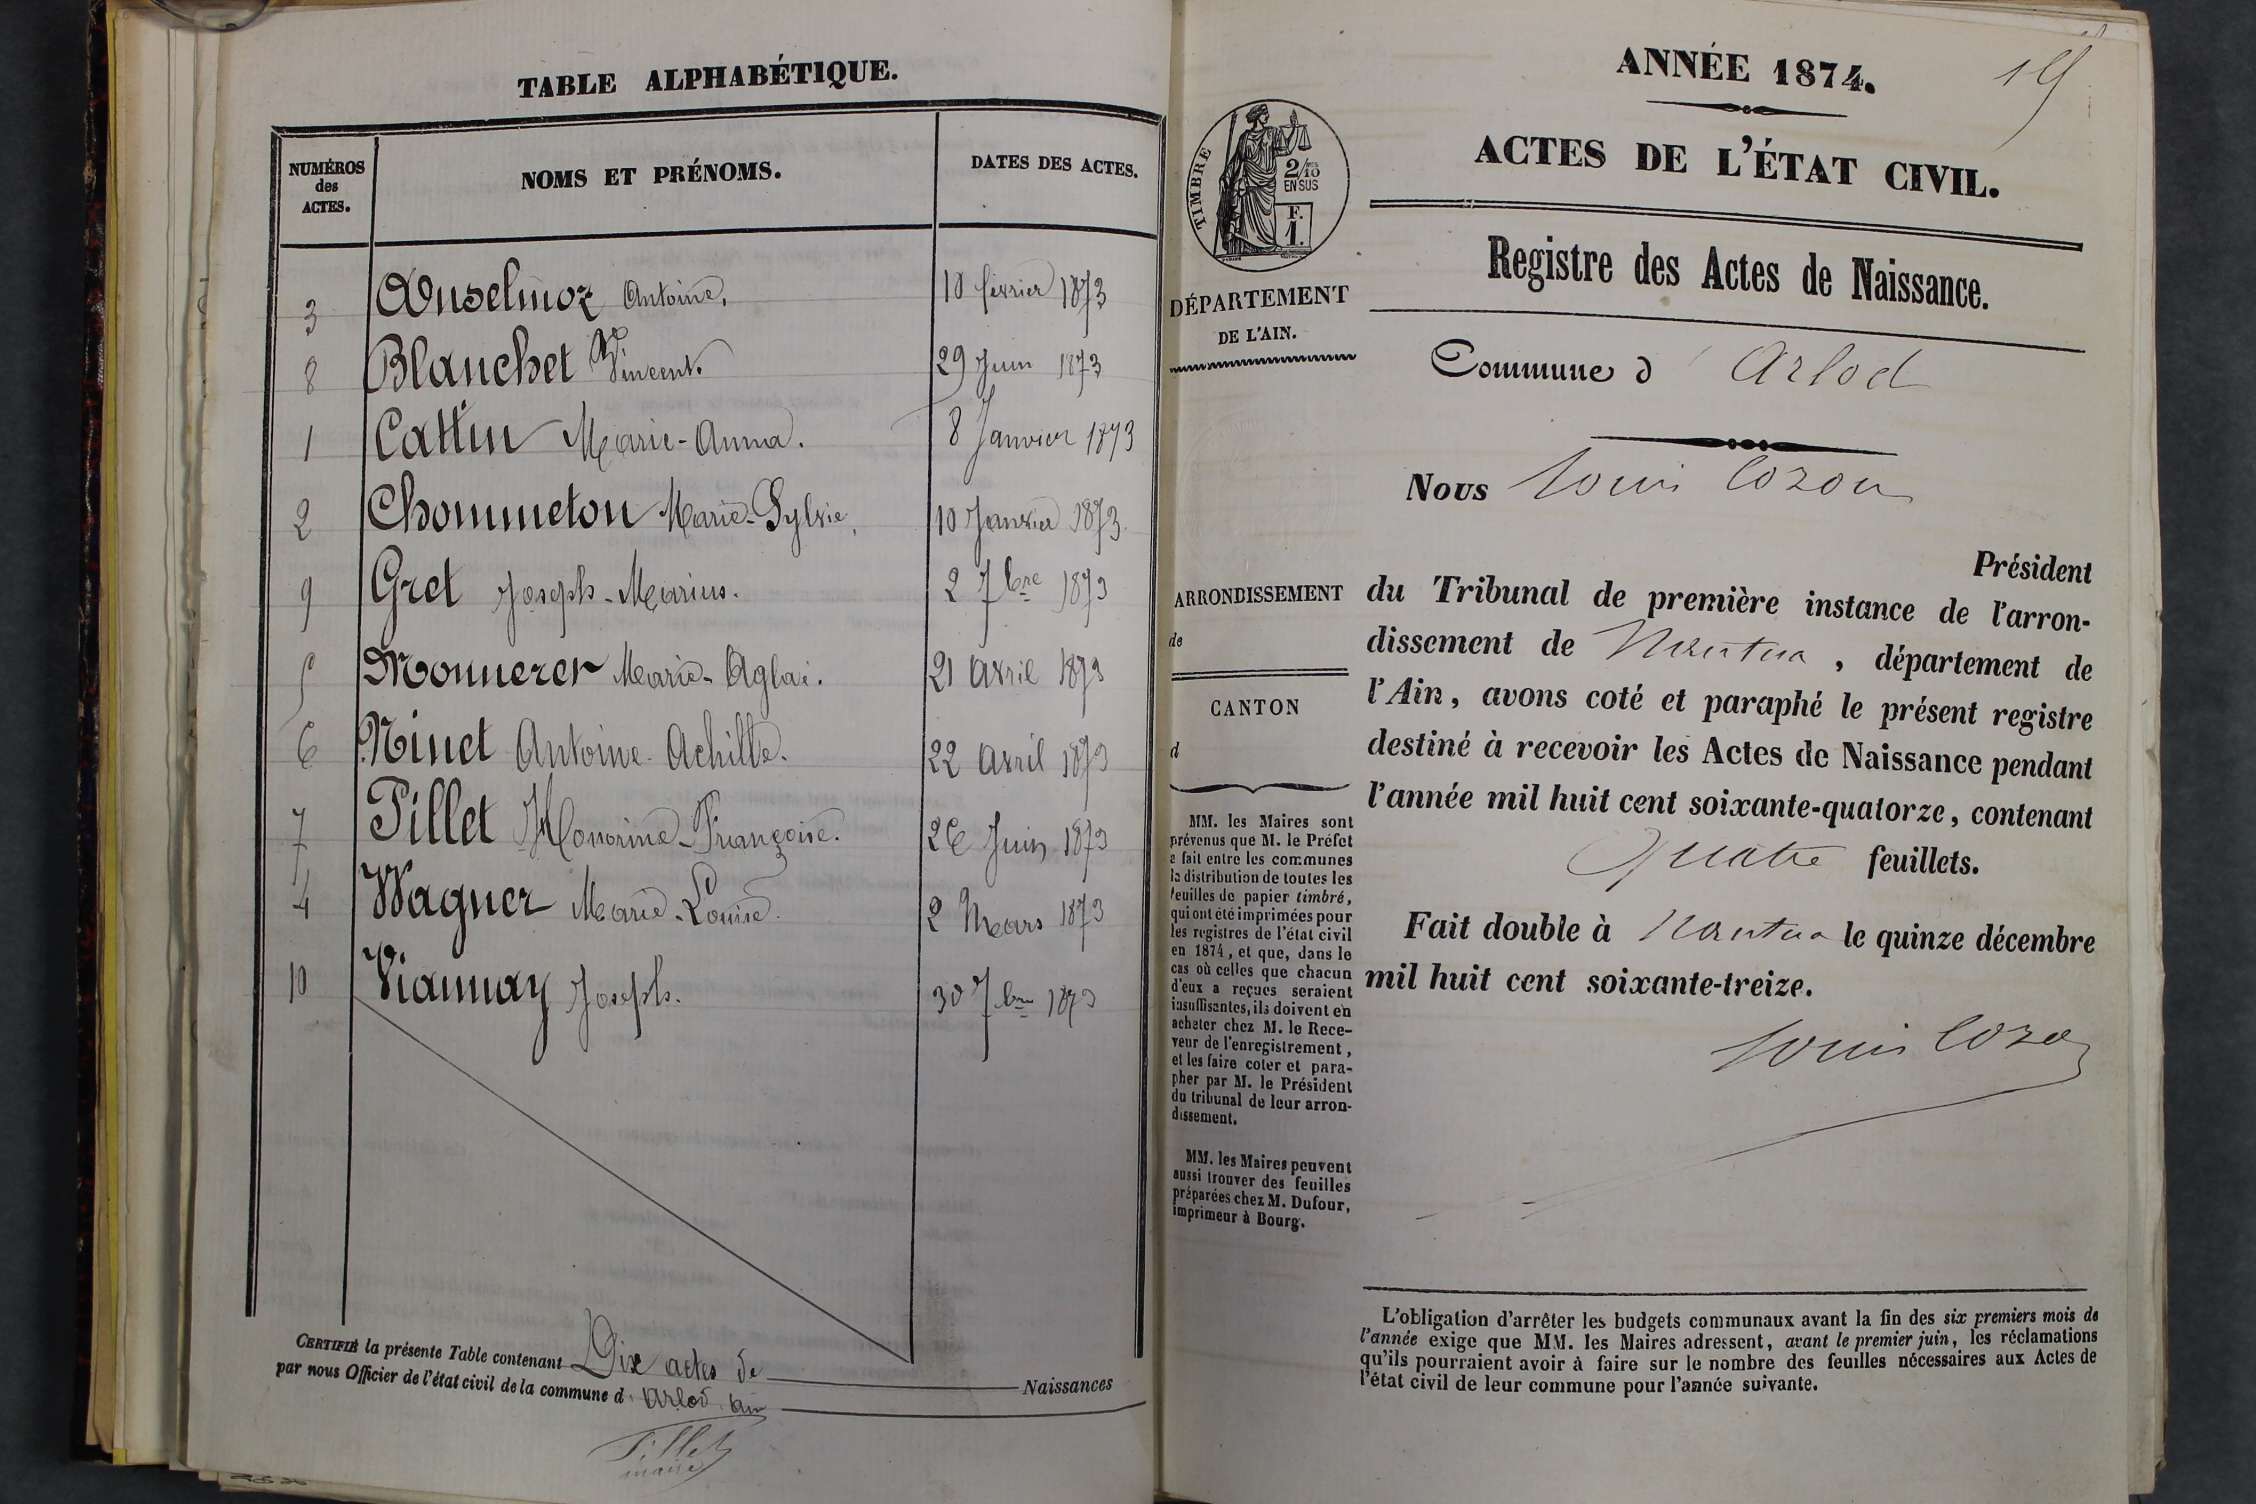 TABLE ALPHABÉTIQUE.
NUMÉROS
des
ACTES.
NOMS ET PRÉNOMS.
DATES DES ACTES.
3 Anselmoz Antoine, 10 février 1873
8 Blanchet Vincent. 29 Juin 1873
1 Cattin Marie-Anna. 8 Janvier 1873
2 Chommeton Marie-Sylvie, 10 Janvier 1873.
9 Gret Joseph-Marius. 2 7bre 1873
5 Monnerer Marie-Aglai. 21 avril 1873
6 Ninet Antoine-Achille. 22 avril 1873
7 Pillet Honorine-Françoise. 26 Juin 1873
4 Wagner Marie-Louise. 2 Mars 1873
10 Viannay Joseph. 30 7bre 1873
CERTIFIÉ la présente Table contenant Dix actes de Naissances
par nous Officier de l'état civil de la commune d'Arlod. Ain
Pillet
maire
15
ANNÉE 1874.
ACTES DE L'ÉTAT CIVIL.
TIMBRE
2/10 EN SUS
F.
1.
Registre des Actes de Naissance.
DÉPARTEMENT
DE L'AIN.
Commune d'Arlod
Nous Louis Cozon
Président
du Tribunal de première instance de l'arron-
dissement de Nantua, département de
l'Ain, avons coté et paraphé le présent registre
destiné à recevoir les Actes de Naissance pendant
l'année mil huit cent soixante-quatorze, contenant
Quatre feuillets.
Fait double à Nantua le quinze décembre
mil huit cent soixante-treize.
Louis Cozon
ARRONDISSEMENT
de
CANTON
d
MM. les Maires sont
prévenus que M. le Préfet
a fait entre les communes
la distribution de toutes les
feuilles de papier timbré,
qui ont été imprimées pour
les registres de l'état civil
en 1874, et que, dans le
cas où celles que chacun
d'eux a reçues seraient
insuffisantes, ils doivent en
acheter chez M. le Rece-
veur de l'enregistrement,
et les faire coter et para-
pher par M. le Président
du tribunal de leur arron-
dissement.
MM. les Maires peuvent
aussi trouver des feuilles
préparées chez M. Dufour,
imprimeur à Bourg.
L'obligation d'arrêter les budgets communaux avant la fin des six premiers mois de
l'année exige que MM. les Maires adressent, avant le premier juin, les réclamations
qu'ils pourraient avoir à faire sur le nombre des feuilles nécessaires aux Actes de
l'état civil de leur commune pour l'année suivante.